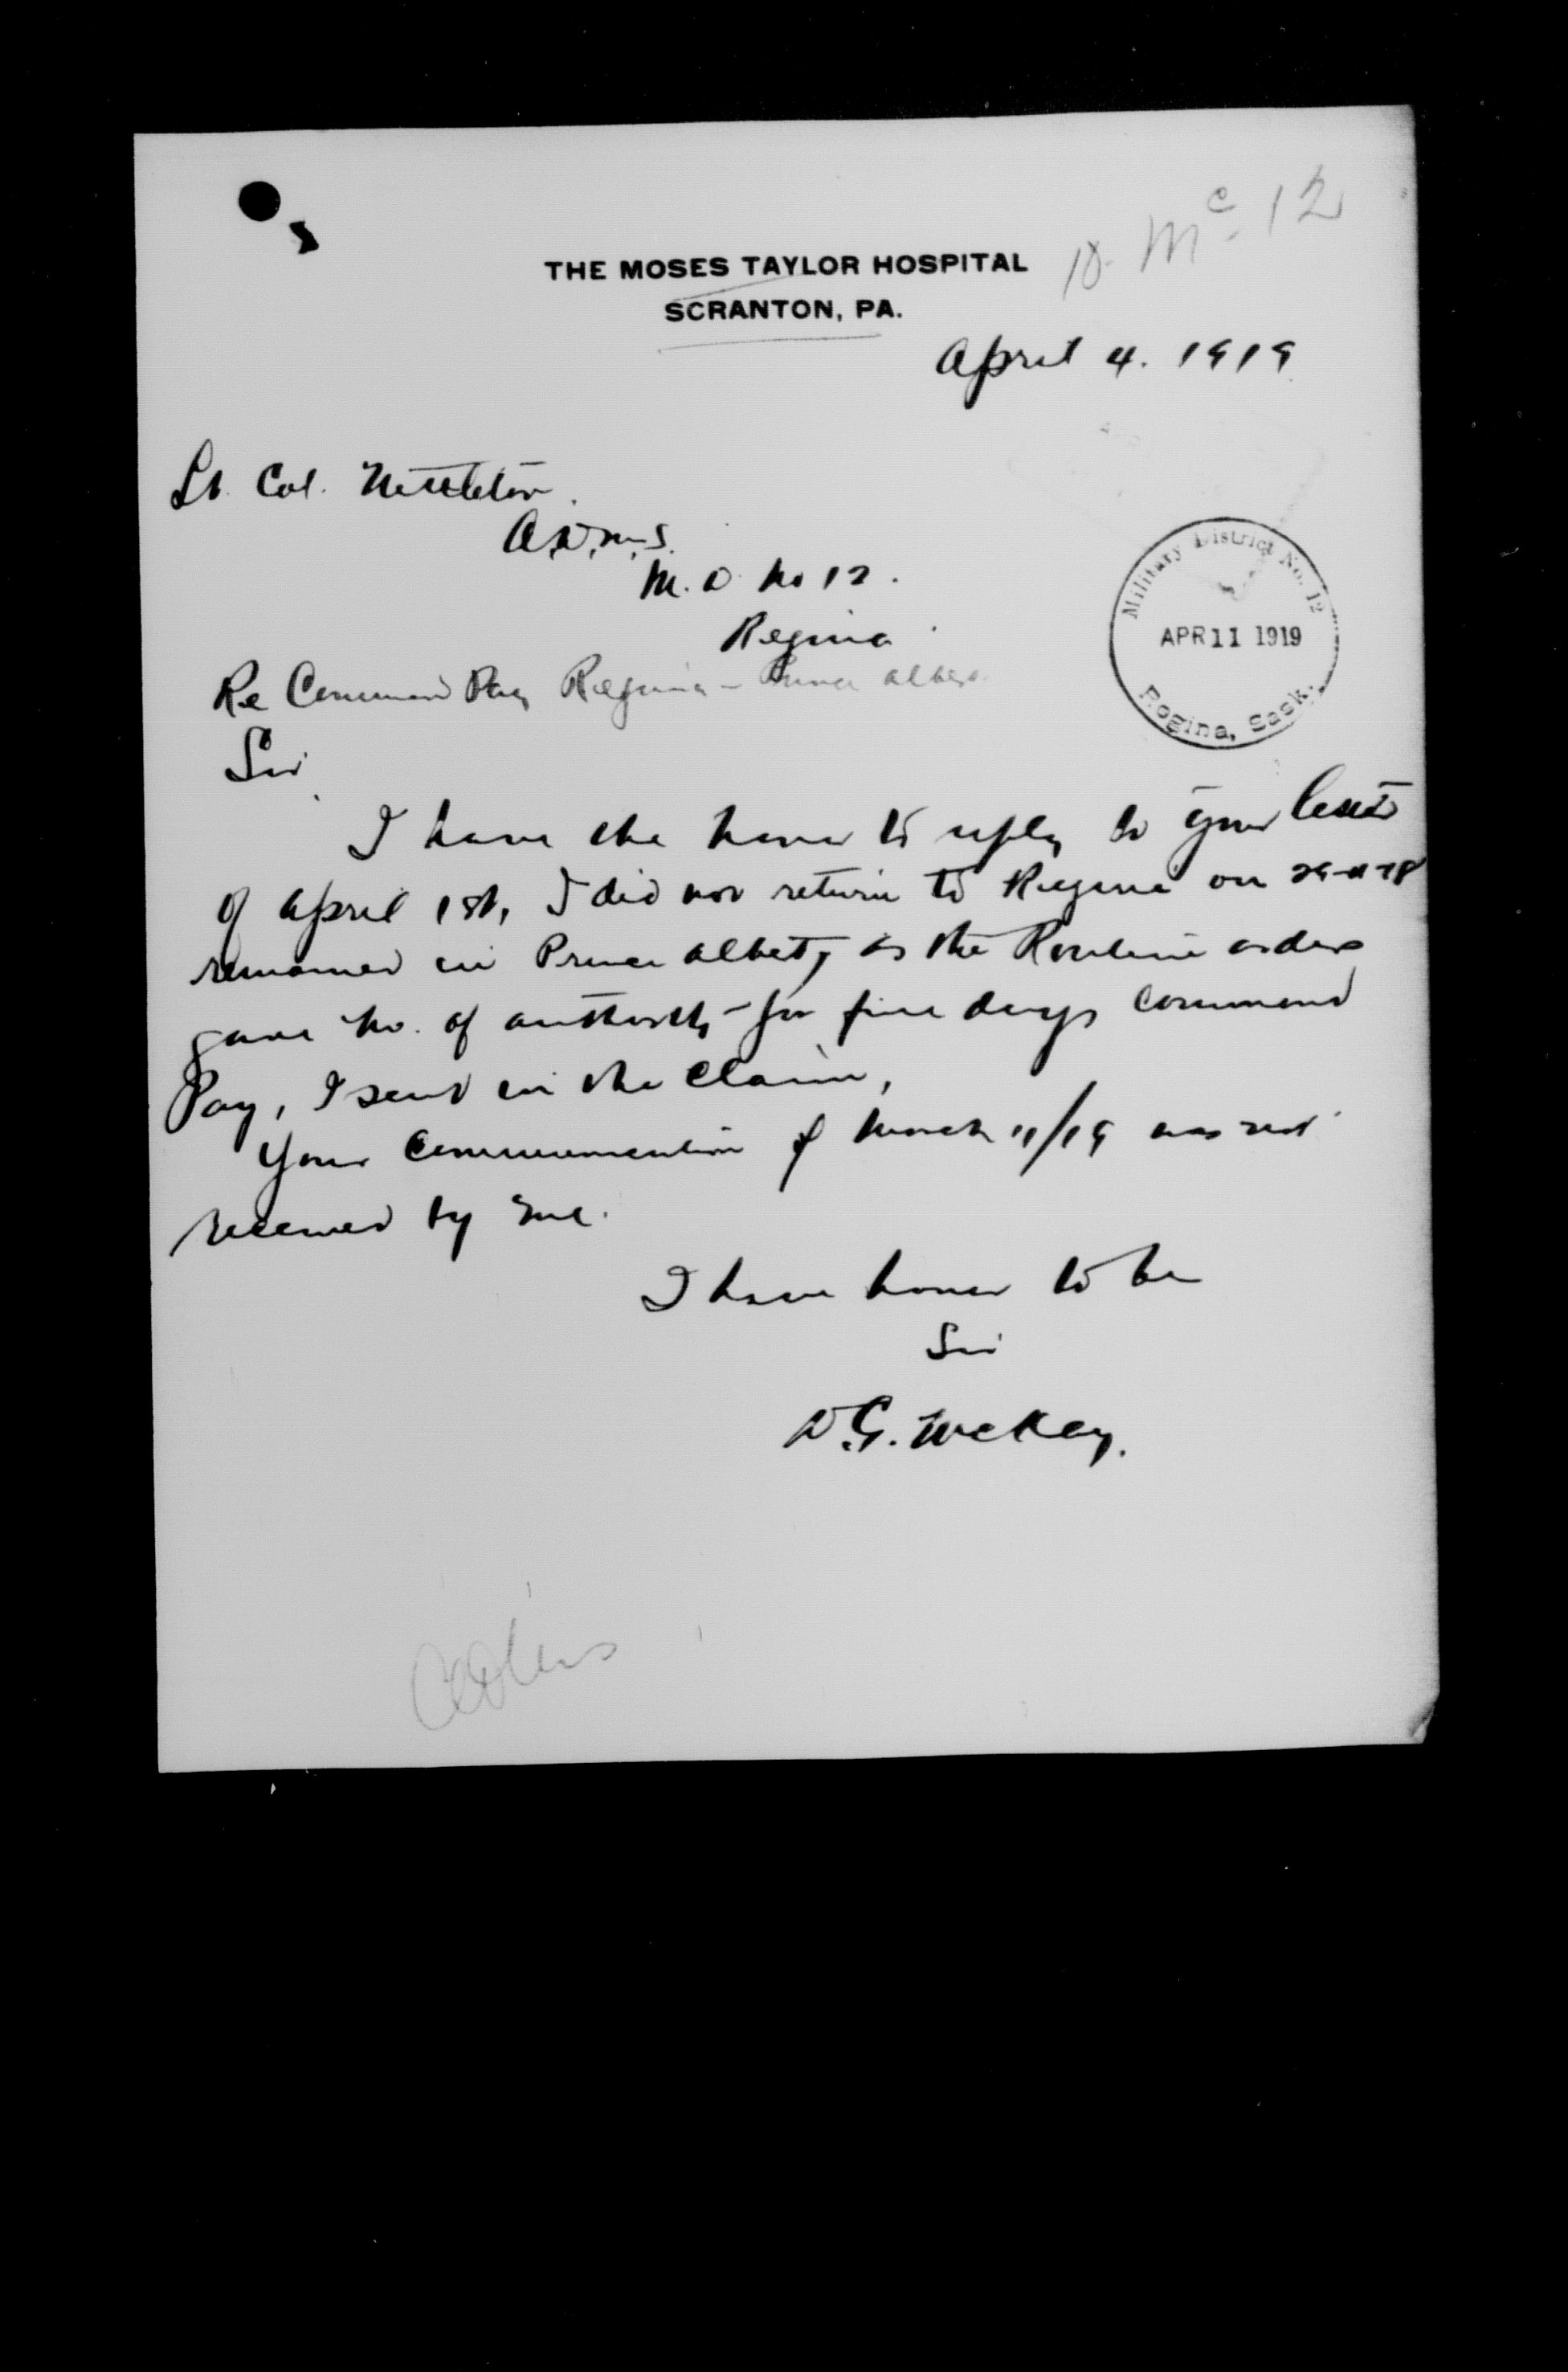 Mc 12
THE MOSES TAYLOR HOSPITAL
SCRANTON, PA.
April 4. 1919
Lt. Col. Nettleton
A.D.M.S.
M.D. No 12.
Regina
Military District No. 12
APR 11 1919
Regina, Sask.
Re Command Pay Regina - Prince Albert
Sir
I have the honor to reply to your letter
of April 1st, I did not return to Regina on
remained in Prince Albert, as the Routine orders
gave no. of authority - for five days Command
Pay, I sent in the claim,
Your communication of March 11/19 was not
received by me.
I have honor to be
Sir
D.G. McKay.